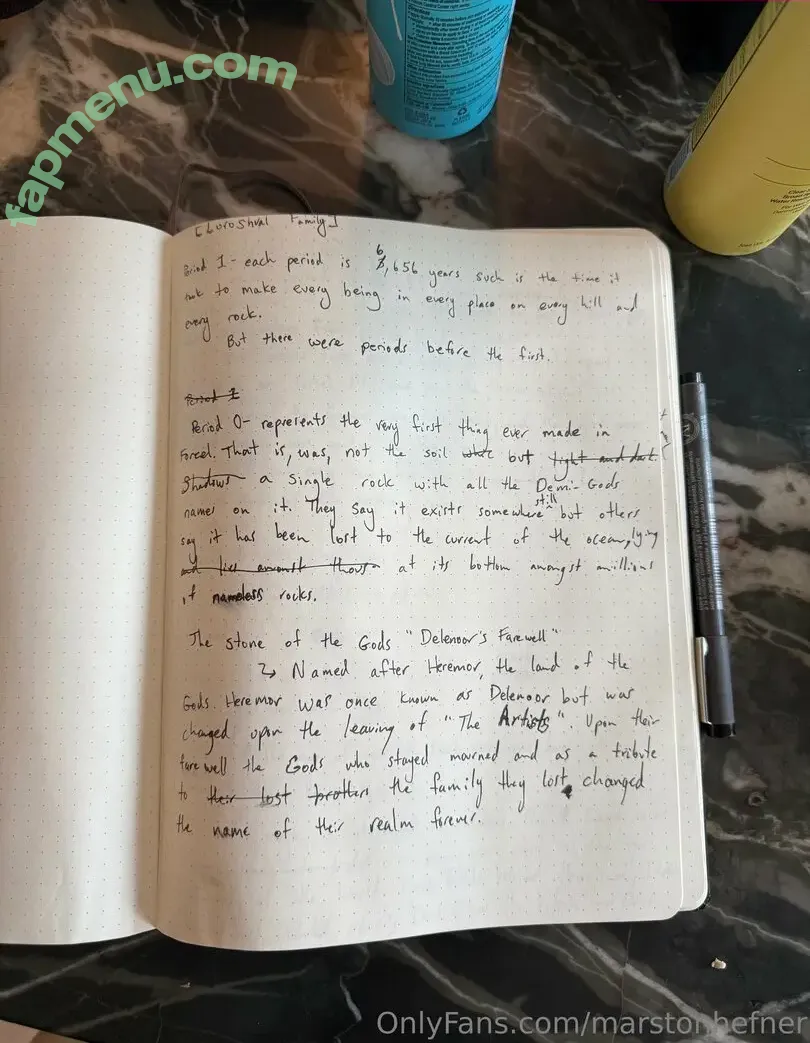 fapmenu.com
[Luroshval Family]
Period 1 - each period is 6,656 years such is the time it
took to make every being in every place on every hill and
every rock.
But there were periods before the first.
Period 1
Period 0 - represents the very first thing ever made in
Forcel. That is, was, not the soil but light and dark
Shadows a single rock with all the Demi-Gods
names on it. They say it exists somewhere still but others
say it has been lost to the current of the ocean, lying
and lies amongst those at its bottom amongst millions
of nameless rocks.
The stone of the Gods "Delenoor's Farewell"
↳ Named after Heremor, the land of the
Gods. Heremor was once known as Delenoor but was
changed upon the leaving of "The Artists". Upon their
farewell the Gods who stayed mourned and as a tribute
to their lost brothers the family they lost, changed
the name of their realm forever.
OnlyFans.com/marstonhefner